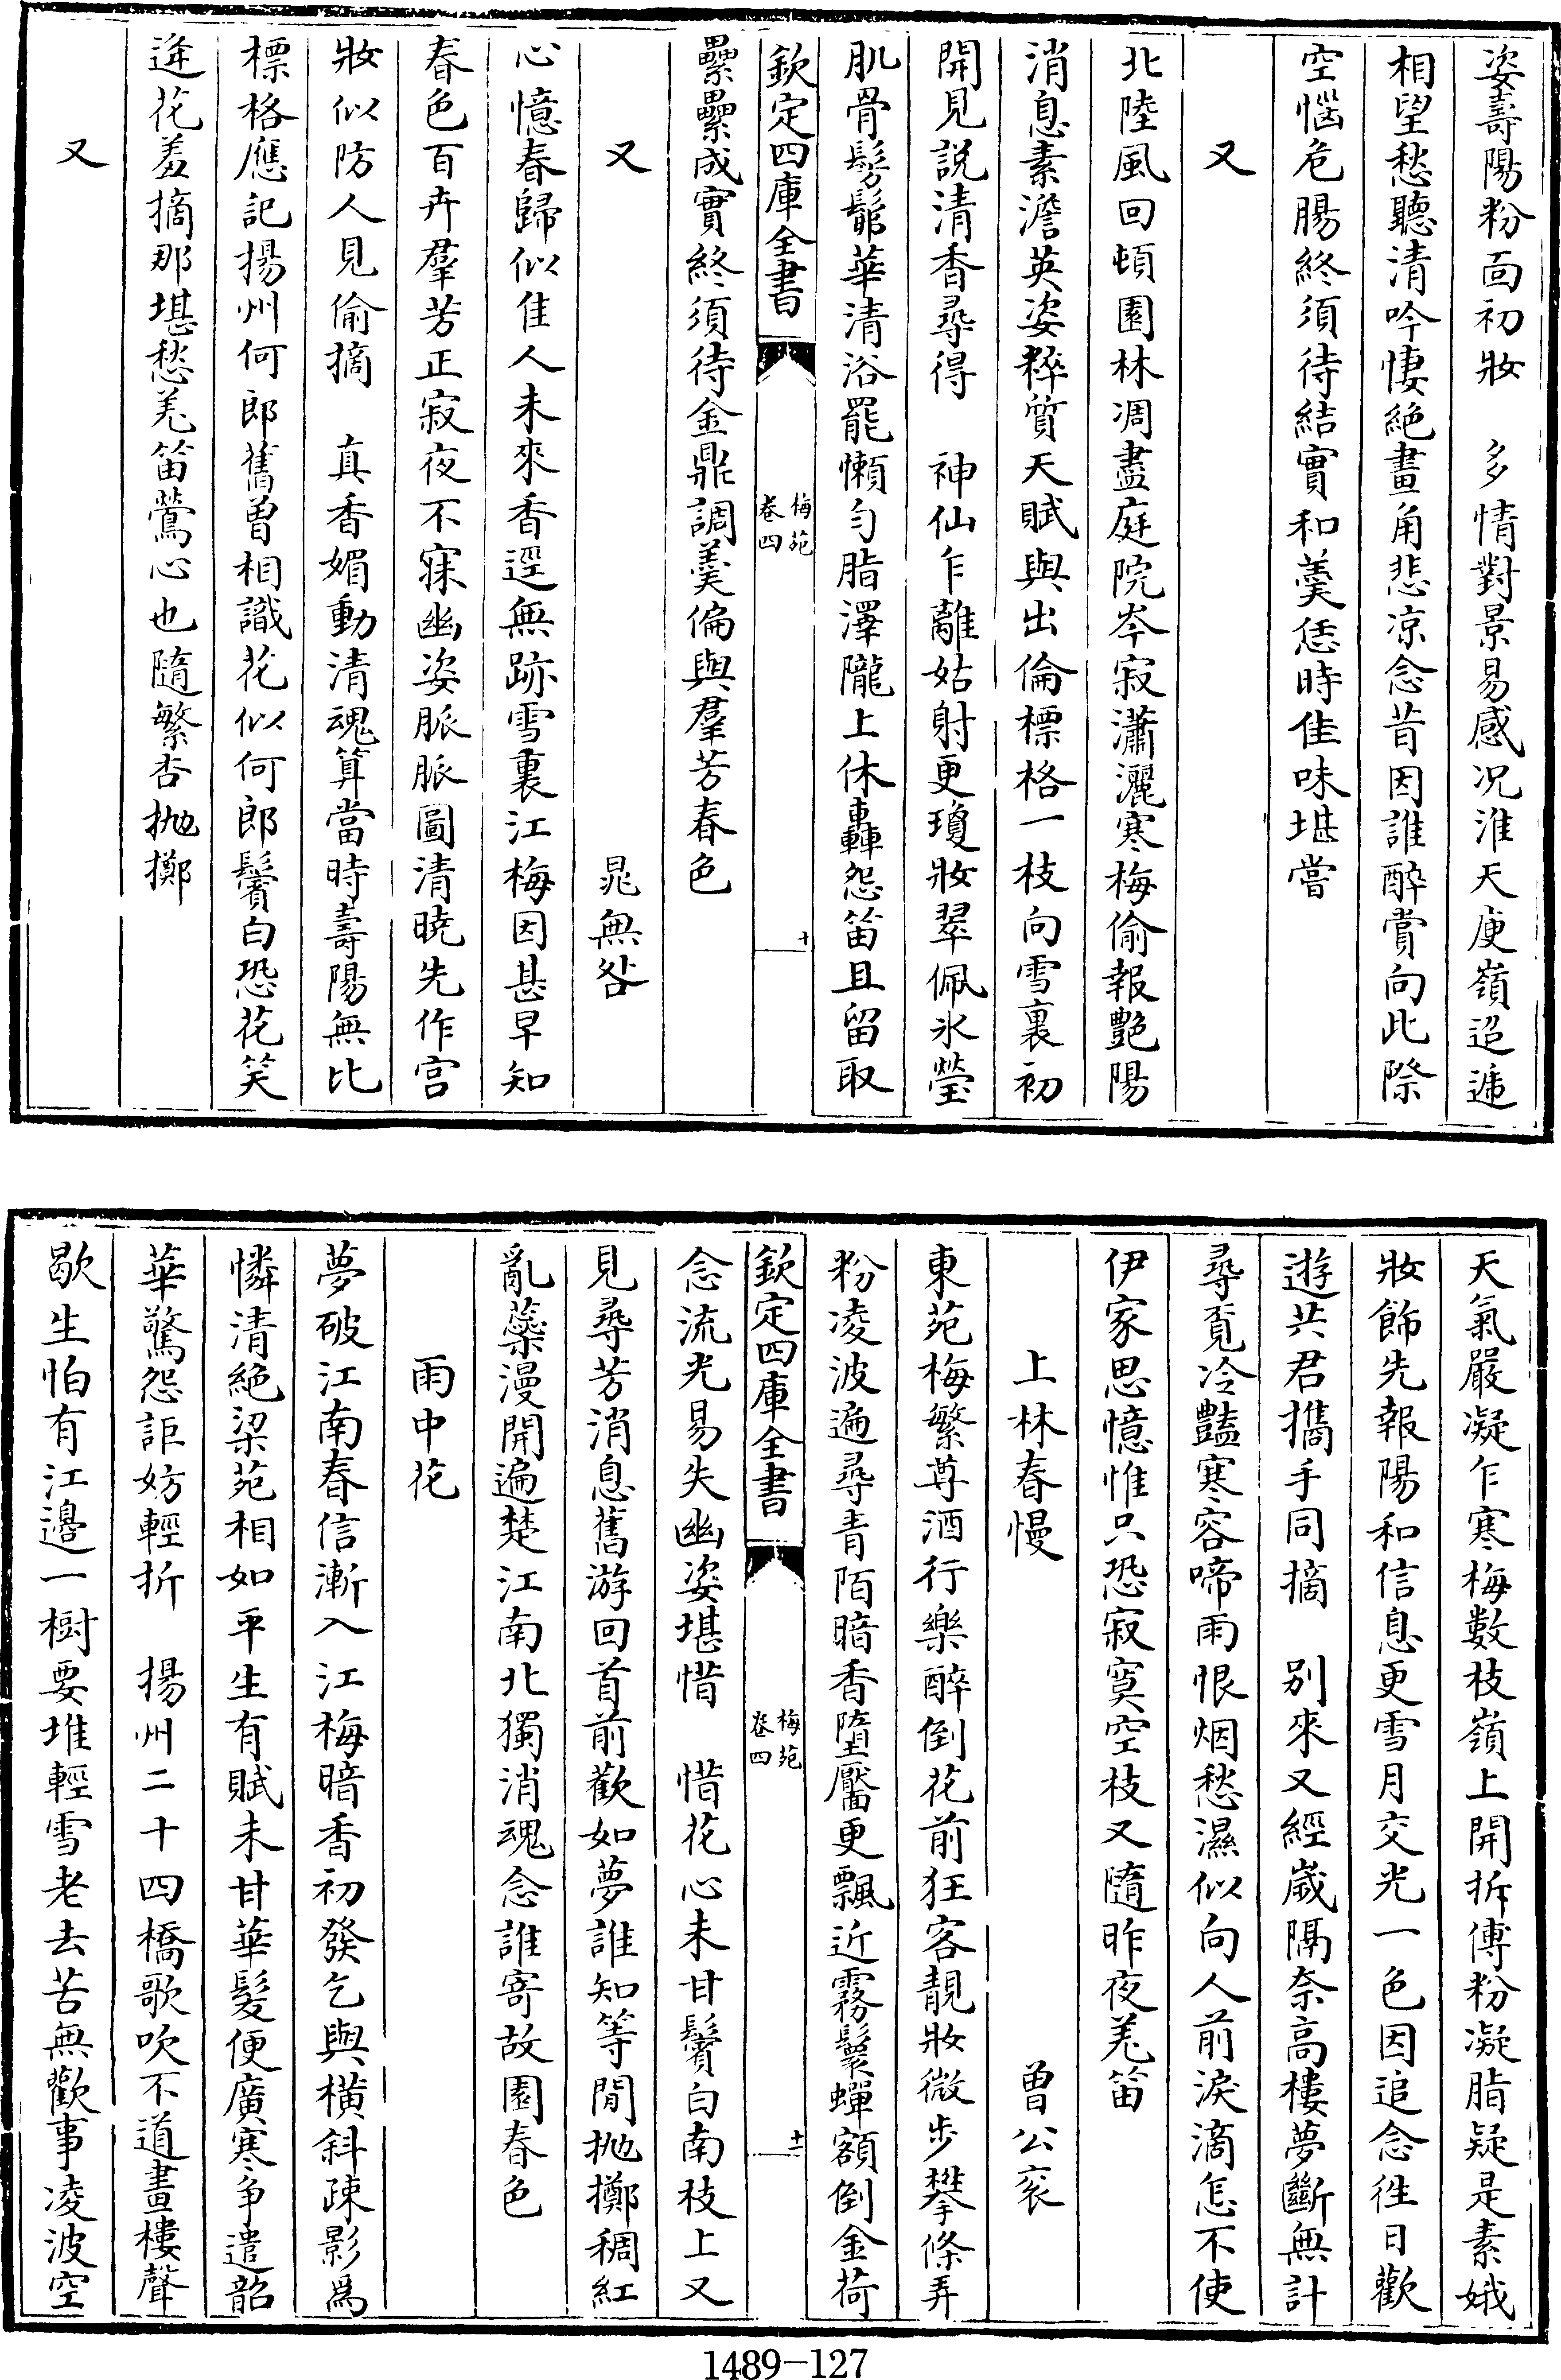 姿壽陽粉面初妝　多情對景易感况淮天庾嶺迢遞
相望愁聽清吟悽絶畫角悲凉念昔因誰醉賞向此際
空惱危腸終須待結實和羹恁時佳味堪嘗
又
北陸風回頓園林凋盡庭院岑寂瀟灑寒梅偷報艶陽
消息素澹英姿粹質天賦與出倫標格一枝向雪裏初
開見説清香尋得　神仙乍離姑射更瓊妝翠佩氷瑩
肌骨髣髴華清浴罷懶勻脂澤隴上休轟怨笛且留取
欽定四庫全書
梅苑
卷四
十
纍纍成實終須待金鼎調羹偏與羣芳春色
又　晁無咎
心憶春歸似佳人未來香逕無跡雪裏江梅因甚早知
春色百卉羣芳正寂夜不寐幽姿脈脈圖清曉先作宫
妝似防人見偷摘　真香媚動清魂算當時壽陽無比
標格應記揚州何郎舊曾相識花似何郎鬢白恐花笑
逄花羞摘那堪愁羌笛鶯心也隨繁杏抛擲
又
天氣嚴凝乍寒梅數枝嶺上開拆傅粉凝脂疑是素娥
妝飾先報陽和信息更雪月交光一色因追念徃日歡
遊共君擕手同摘　别來又經嵗隔奈高樓夢斷無計
尋覔冷豔寒容啼雨恨烟愁濕似向人前淚滴怎不使
伊家思憶惟只恐寂寞空枝又隨昨夜羌笛
上林春慢　曾公衮
東苑梅繁尊酒行樂醉倒花前狂客靚妝微步攀條弄
粉凌波遍尋青陌暗香墮靨更飄近霧鬟蟬額倒金荷
欽定四庫全書
梅苑
卷四
十一
念流光易失幽姿堪惜　惜花心未甘鬢白南枝上又
見尋芳消息舊游回首前歡如夢誰知等閒抛擲稠紅
亂蘂漫開遍楚江南北獨消魂念誰寄故園春色
雨中花
夢破江南春信漸入江梅暗香初發乞與横斜疎影爲
憐清絶梁苑相如平生有賦未甘華髮便廣寒争遣韶
華驚怨詎妨輕折　揚州二十四橋歌吹不道畫樓聲
歇生怕有江邊一樹要堆輕雪老去苦無歡事凌波空
1489-127